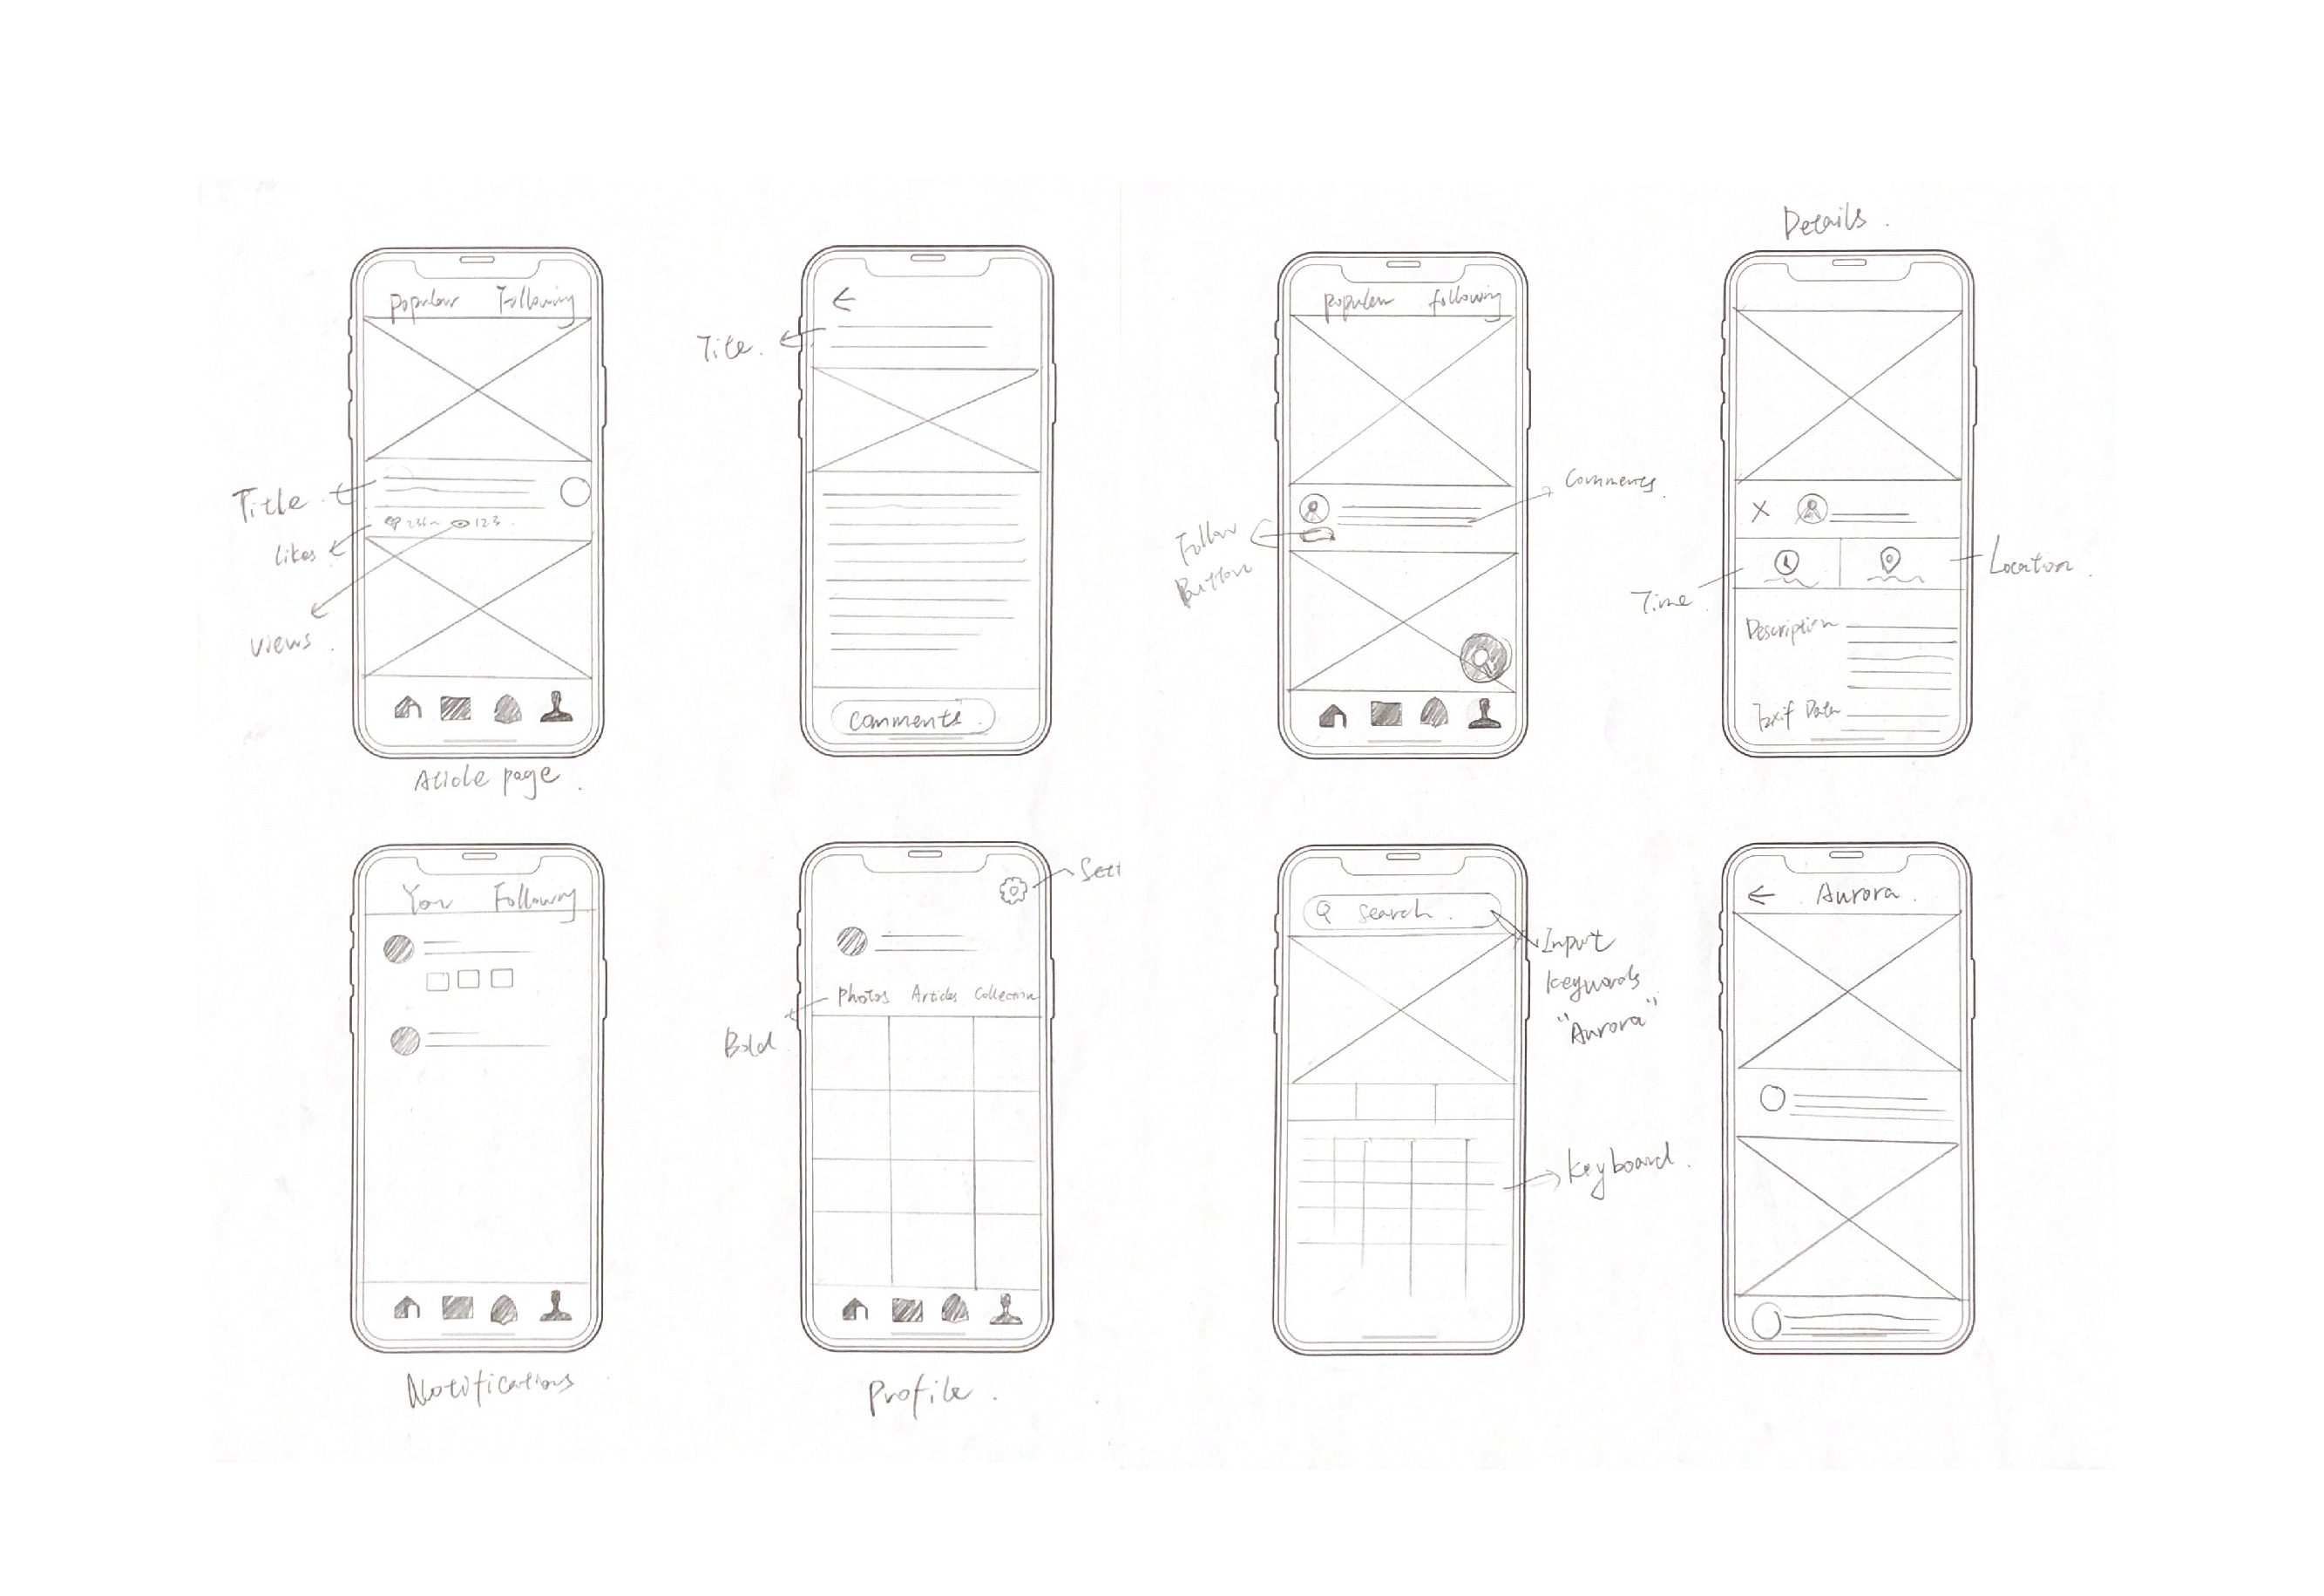 Details.
Popular Following
Title
Likes
236
123
Views
Article page.
Title.
Comments.
Popular Following
Comments.
Follow
Button
Time
Location.
Description
Exif Data
You Following
Notifications
Sett
Photos Articles Collection
Bold
Profile.
Search.
Input
keywords
"Aurora"
Keyboard.
Aurora.